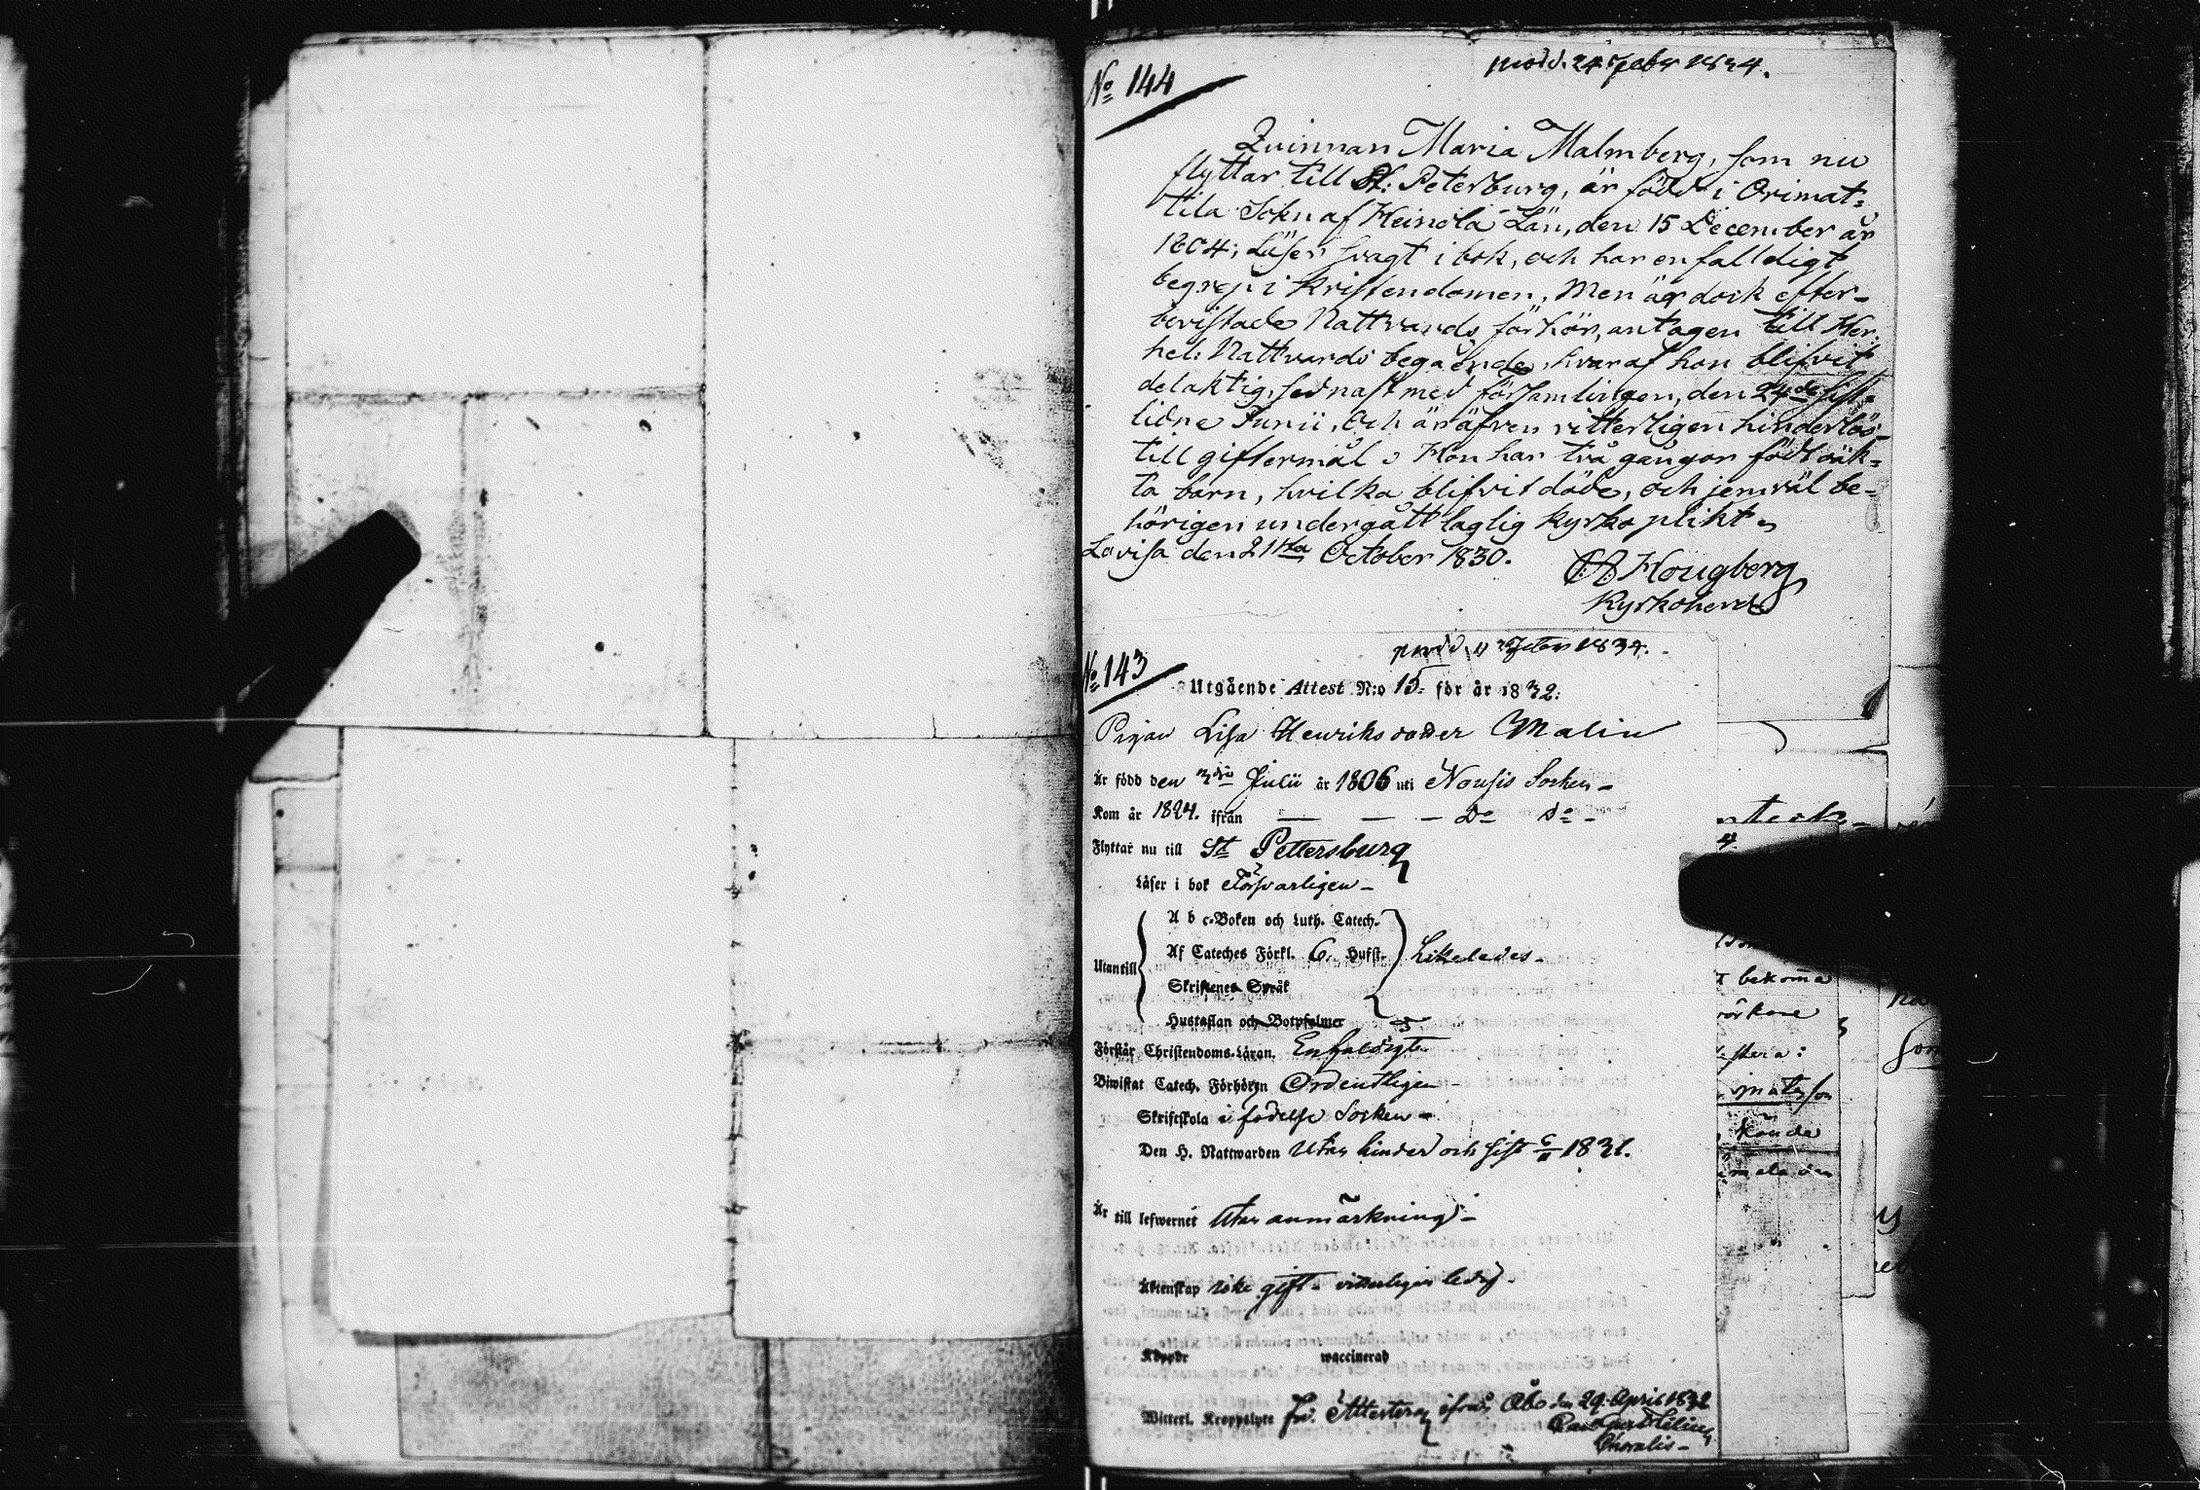 No 144
prod. 24 Febr 1834.
Qvinnan Maria Malmberg, som nu
flyttar till St: Petersburg, är född i Orimat=
tila Sokn af Heinola Län, den 15 December år
1804; Läser svagt i bok, och har enfalldigt
begrep i Kristendomen, Men är dock efter
bevistade Nattvards förhör, antagen till Her
hel: Nattvards begående, hvaraf hon blifvit
delaktig, sednast med församlingen, den 24de sist=
lidne Junii, Och är äfven vitterligen hinderlös
till giftermål. Hon har två gångor födt oäk=
ta barn, hvilka blifvit döde, och jemväl be=
hörigen undergått laglig kyrkoplikt.
Lovisa den 21sta October 1830.
Hougberg
Kyrkoherde
No 143
1834.
Utgående Attest N:o 15. för år 1832.
Pigan Lisa Henriksdotter Malin
Är född den 3die Julii år 1806 uti Nousis Socken
Kom år 1824. ifrån — — — Do do
Flyttar nu till St Pettersburg
Läser i bok Försvarligen
A b c-Boken och Luth. Catech.
Utantill Af Cateches Förkl. 6. Hufst. Likaledes
Skriftenes Språk
Hustaflan och Botpsalmer
Förstår Christendoms-Läran. Enfaldigt
Biwistat Catech. Förhören Ordentligen
Skriftskola i födelse Socken
Den H. Nattwarden Utan hinder och sist 1831.
Är till lefwernet Utan anmärkning
Äktenskap icke gift vitterligen ledig
Koppor waccinerad
Witterl. Kroppslyte Attesterar ifrån Åbo den 29 April 1832
bekomma